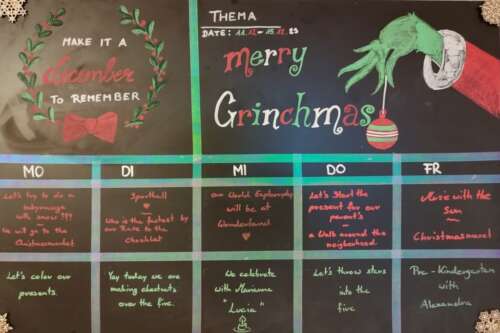 MAKE IT A
december
TO REMEMBER
THEMA
DATE: 11.12 – 15.12.23
merry
Grinchmas
MO
DI
MI
DO
FR
Let's try to do a
with snow ???
we will go to the
Christmasmarket
Sporthall
Who is the fastest by
our Race to the
our World Exploraphy
will be at
Wonderland
Let's Start the
present for our
parent's
a Walk around the
neigborhood.
Music with the
Sun
Christmascarol
Let's color our
presents.
Yay today we are
making chestnuts
over the fire.
We celebrate
with Marianne
"Lucia"
Let's throw stars
into the
fire
Pre - Kindergarten
with
Alexandra